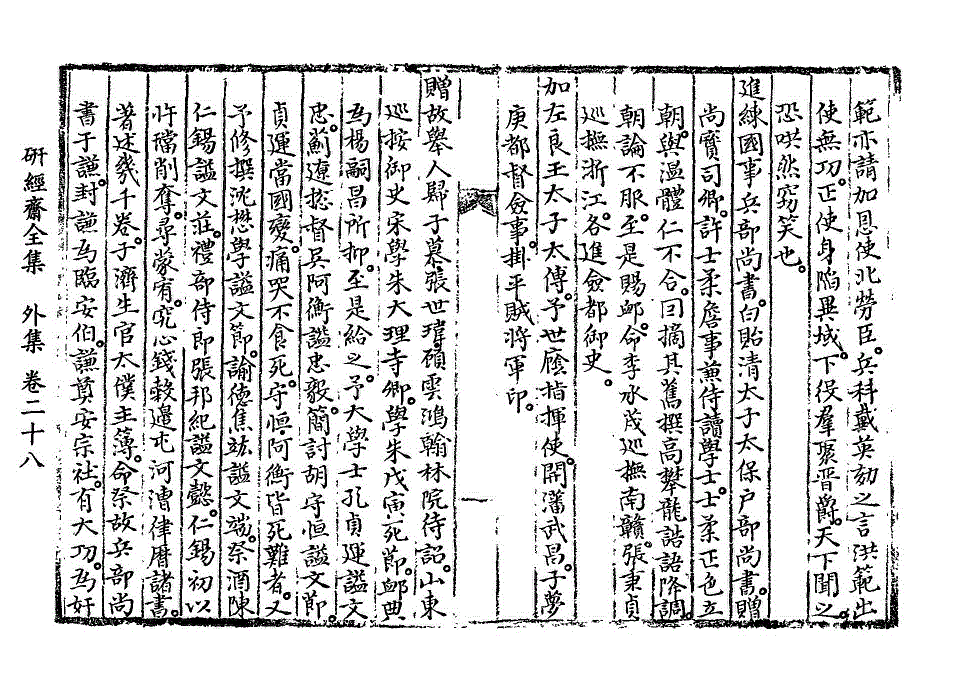 範亦請加恩使北勞臣兵科戴英劾之言洪範出
使無功正使身陷異域下役羣聚晋爵天下聞之
恐哄然竊笑也
進練國事兵部尚書白貽清太子太保戶部尚書贈
尚寶司卿許士柔詹事兼侍讀學士士柔正色立
朝與溫體仁不合回摘其舊撰高攀龍誥語降調
朝論不服至是賜卹命李永茂巡撫南贛張秉貞
巡撫浙江各進僉都御史
加左良玉太子太傅予世廕指揮使開藩武昌子夢
庚都督僉事掛平賊將軍印
贈故擧人歸子慕張世瑋碩雲鴻翰林院待詔山東
巡按御史宋學朱大理寺卿學朱戊寅死節卹典
為楊嗣昌所抑至是給之予大學士孔貞運謚文
忠薊遼摠督吳阿衡謚忠毅簡討胡守恒謚文節
貞運當國變痛哭不食死守恒阿衡皆死難者又
予修撰沈懋學謚文節諭德焦竑謚文端祭酒陳
仁錫謚文莊禮部侍郎張邦紀謚文懿仁錫初以
忤璫削奪尋蒙宥究心錢穀邊屯河漕律曆諸書
著述幾千卷子濟生官太僕主簿命祭故兵部尚
書于謙封謙為臨安伯謙奠安宗社有大功為奸
硏經齋全集 外集 卷二十八